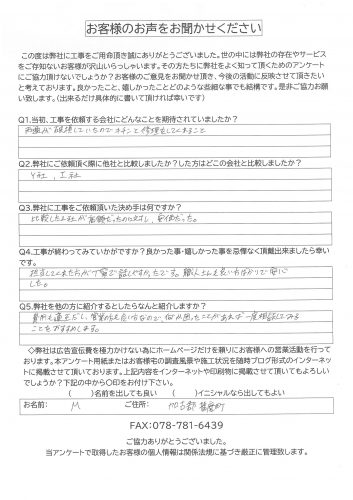 お客様のお声をお聞かせください
この度は弊社に工事をご用命頂き誠にありがとうございました。世の中には弊社の存在やサービス
をご存知ないお客様が沢山いらっしゃいます。その方たちに弊社をよく知って頂くためのアンケート
にご協力頂けないでしょうか？お客様のご意見をお聞かせ頂き、今後の活動に反映させて頂きたい
と考えております。良かったこと、嬉しかったことどのような些細な事でも結構です。是非ご協力お願
い致します。（出来るだけ具体的に書いて頂ければ幸いです）
Q1.当初、工事を依頼する会社にどんなことを期待されていましたか？
雨樋が破損していたのでキチンと修理をしてくれること
Q2.弊社にご依頼頂く際に他社と比較しましたか？した方はどこの会社と比較しましたか？
Y社、I社
Q3.弊社に工事をご依頼頂いた決め手は何ですか？
比較した2社が高額だったのに対し、安価だった。
Q4.工事が終わってみていかがですか？良かった事・嬉しかった事を忌憚なく頂戴出来ましたら幸い
です。
担当してくれた方が丁寧で話しやすかったです。職人さんも良い方ばかりで安心
した。
Q5.弊社を他の方に紹介するとしたらなんと紹介しますか？
費用も適正だし、営業の方も良い方なので、何か困ったことがあれば一度相談してみる
ことをすすめします。
◇弊社は広告宣伝費を極力かけない為にホームページだけを頼りにお客様への営業活動を行って
おります。本アンケート用紙またはお客様宅の調査風景や施工状況を随時ブログ形式のインターネッ
トに掲載させて頂いております。上記内容をインターネットや印刷物に掲載させて頂いてもよろしい
でしょうか？下記の中から〇印をお付け下さい。
（　　）名前を出しても良い　（　　）イニシャルなら出してもよい
お名前:　M　ご住所:　加古郡播磨町
FAX:078-781-6439
ご協力ありがとうございました。
当アンケートで取得したお客様の個人情報は関係法規に基づき厳正に管理致します。